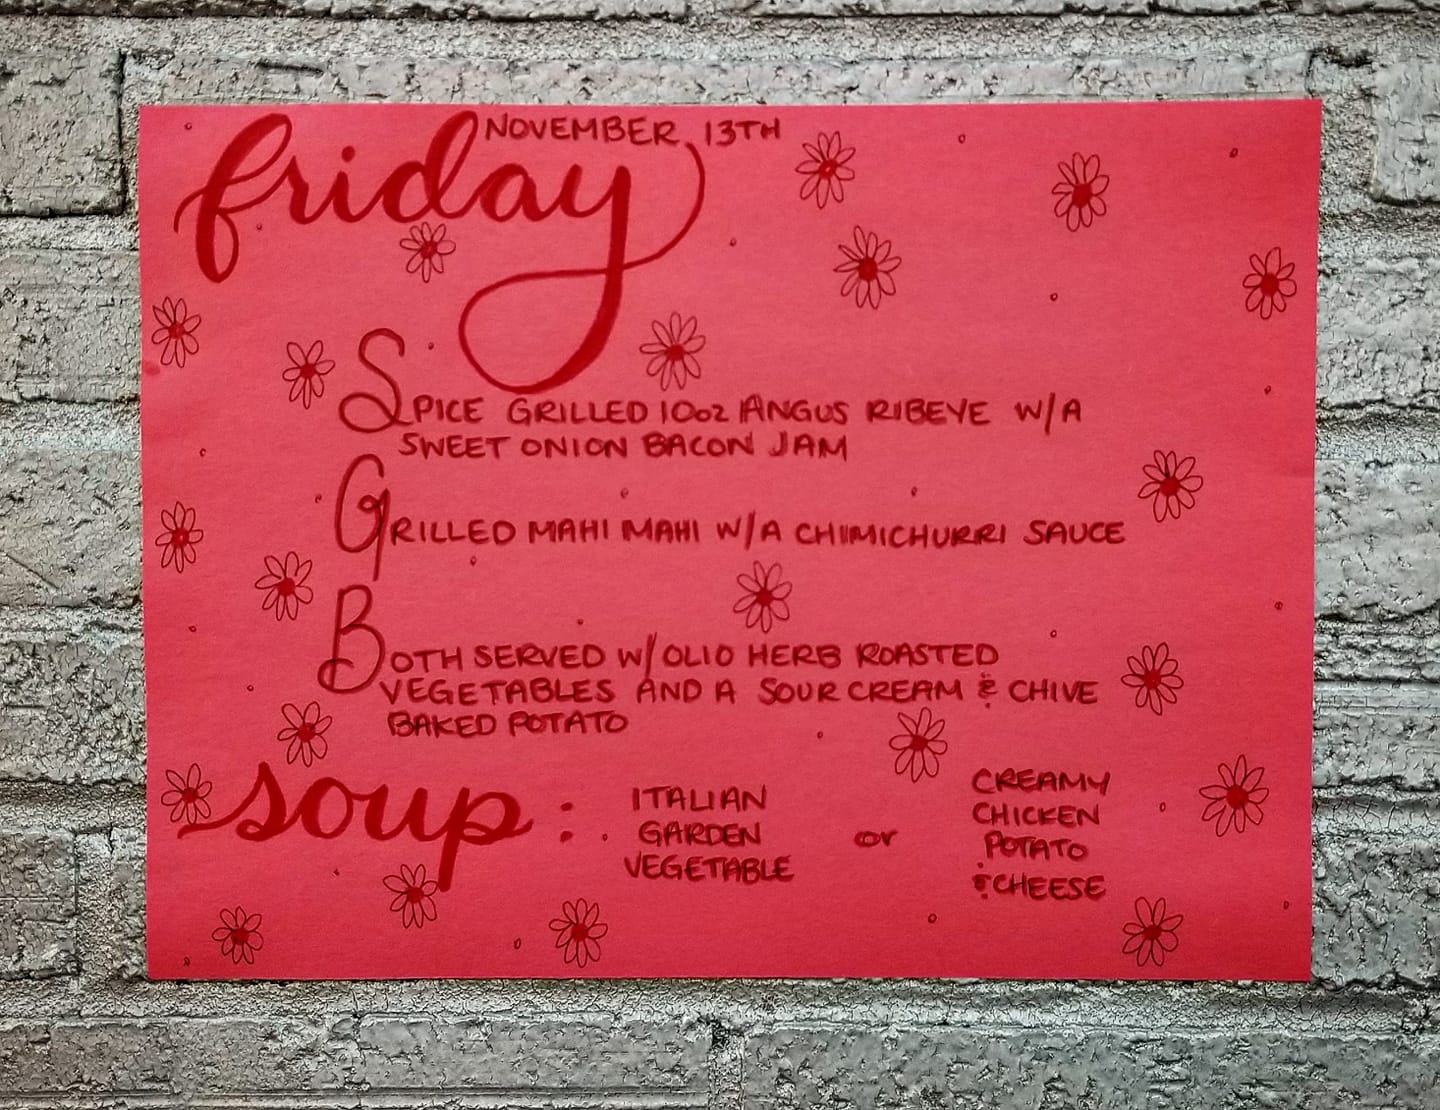 friday NOVEMBER 13TH
SPICE GRILLED 10oz ANGUS RIBEYE W/A
SWEET ONION BACON JAM
GRILLED MAHI MAHI W/A CHIMICHURRI SAUCE
BOTH SERVED W/ OLIO HERB ROASTED
VEGETABLES AND A SOUR CREAM & CHIVE
BAKED POTATO
soup :
ITALIAN
GARDEN
VEGETABLE
or
CREAMY
CHICKEN
POTATO
& CHEESE